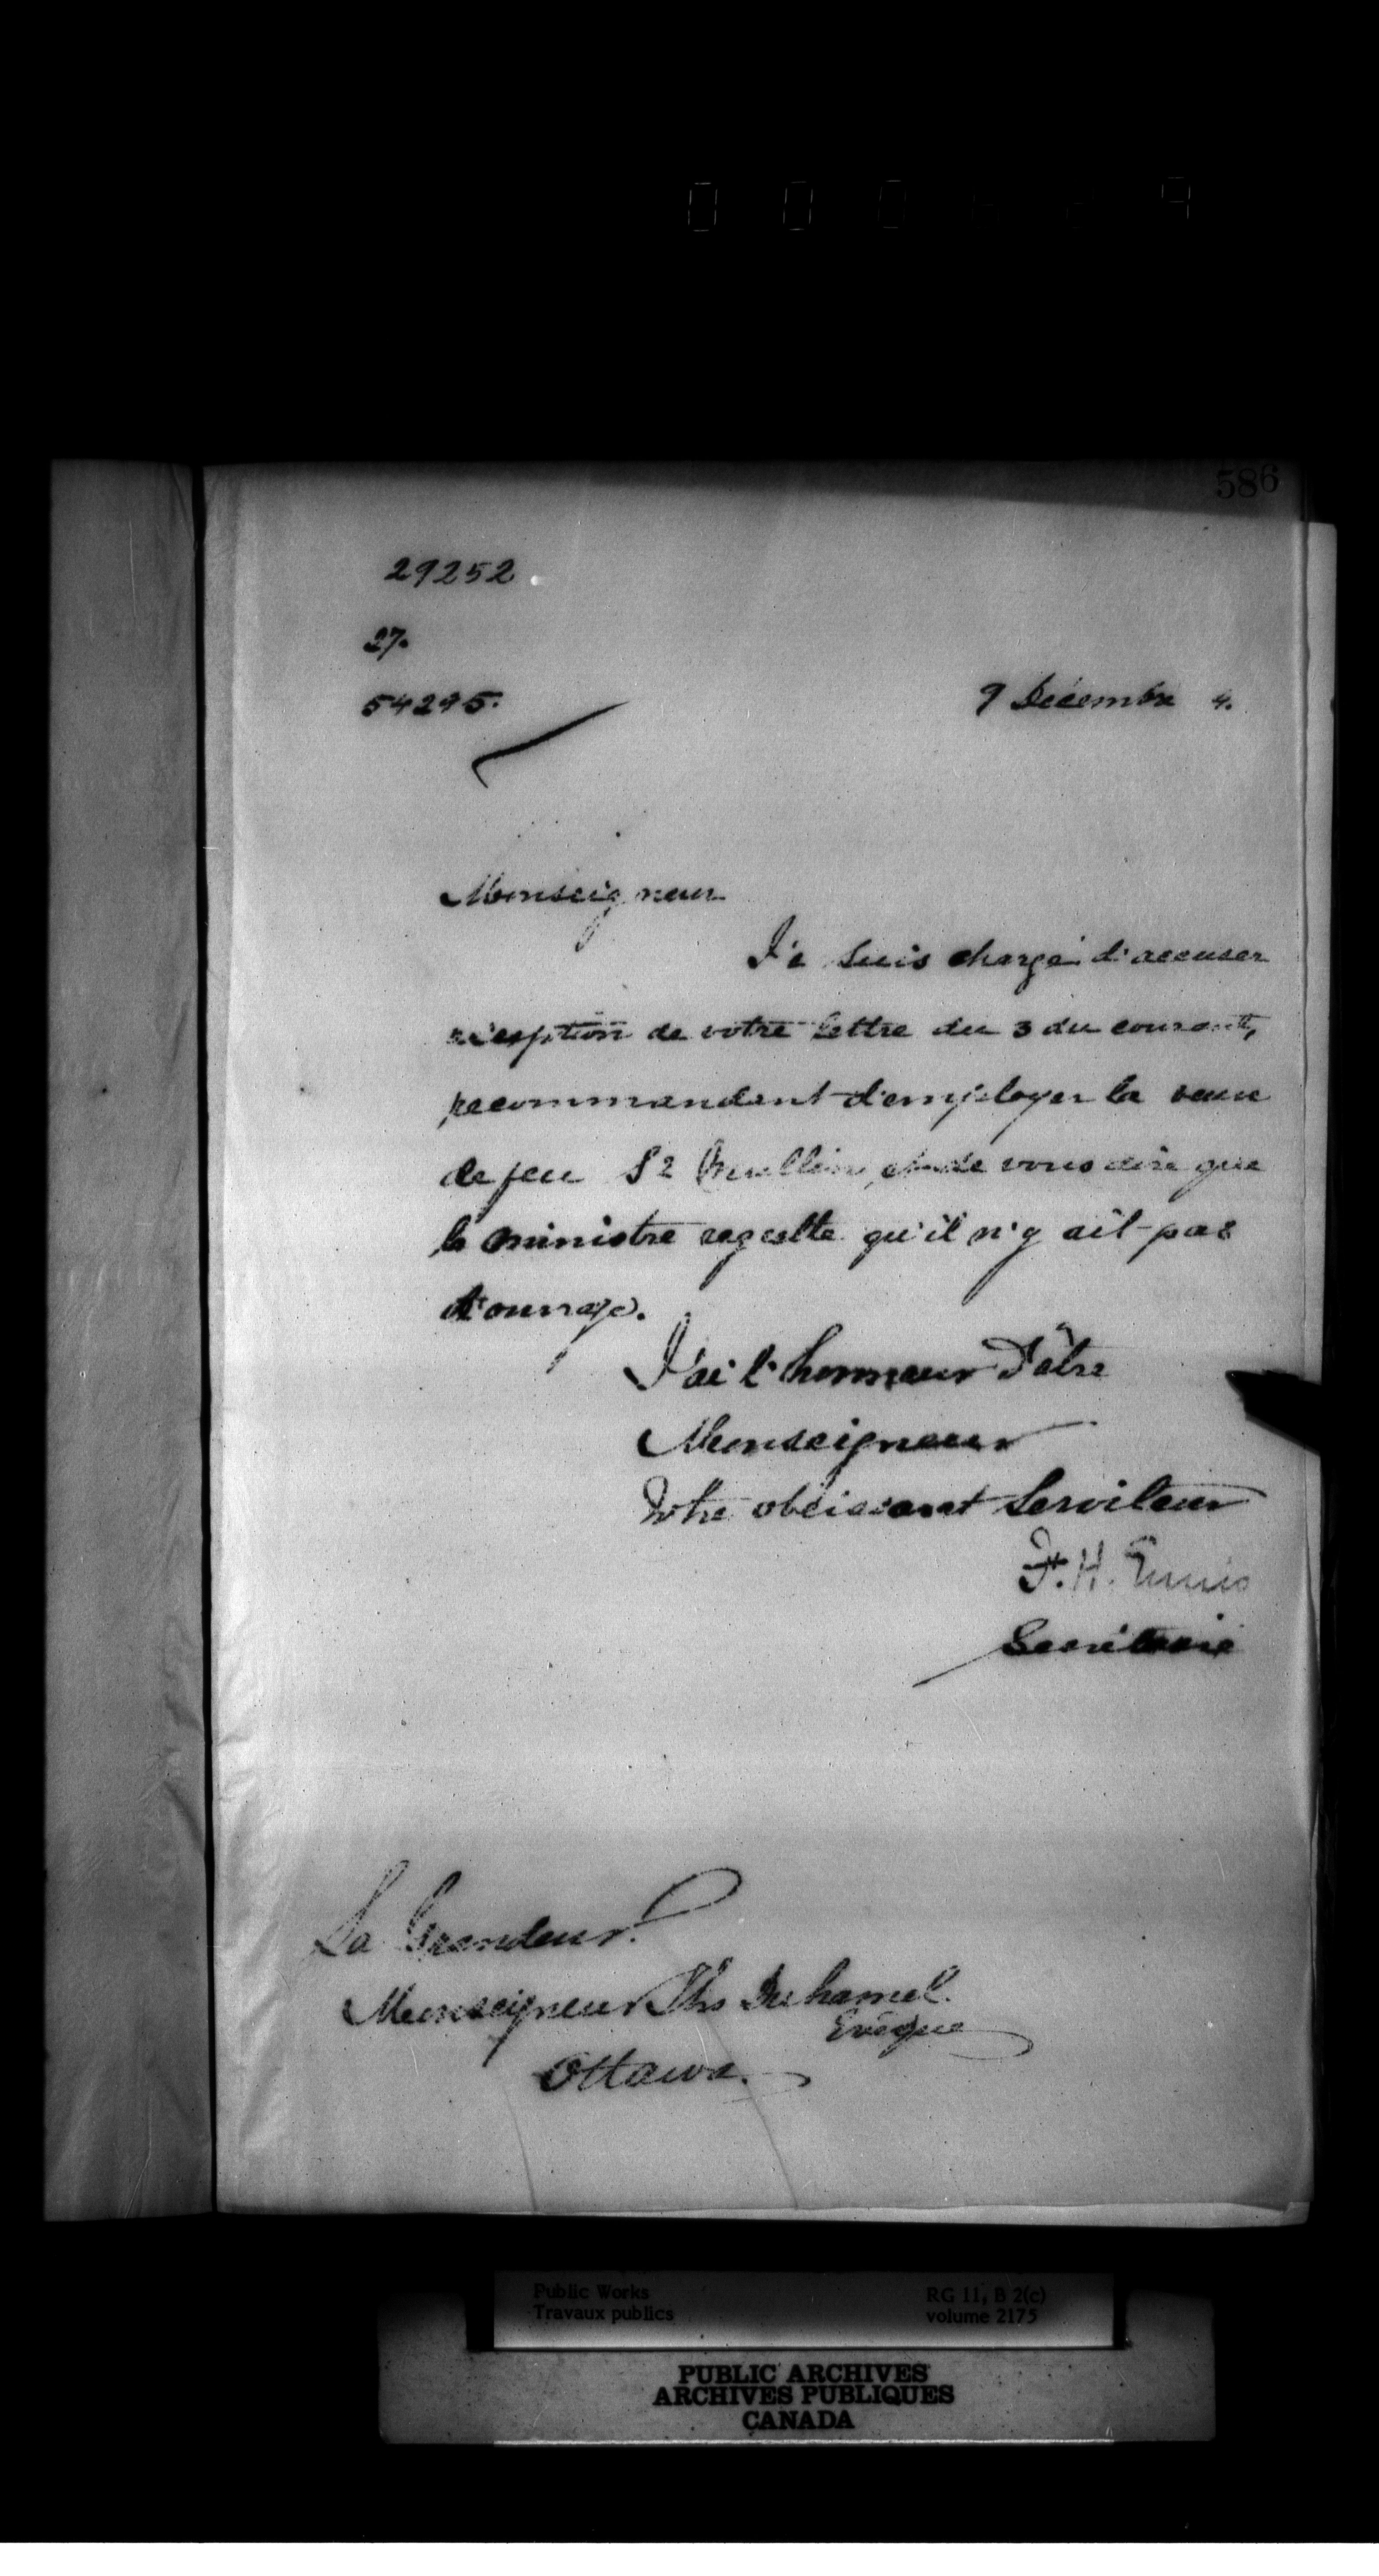 586
29252
27.
54295.
9 Décembre 4.
Monseigneur
Je suis chargé d'accuser
réception de votre lettre du 3 du courant,
recommandant d'employer la veuve
de feu et de vous dire que
le ministre regrette qu'il n'y ait pas
d'ouvrage.
J'ai l'honneur d'être
Monseigneur
Votre obéissant Serviteur
F. H. Ennis
Secrétaire
Sa Grandeur
Monseigneur Ths Duhamel.
Evêque
Ottawa.
Public Works
Travaux publics
RG 11, B 2(c)
volume 2175
PUBLIC ARCHIVES
ARCHIVES PUBLIQUES
CANADA